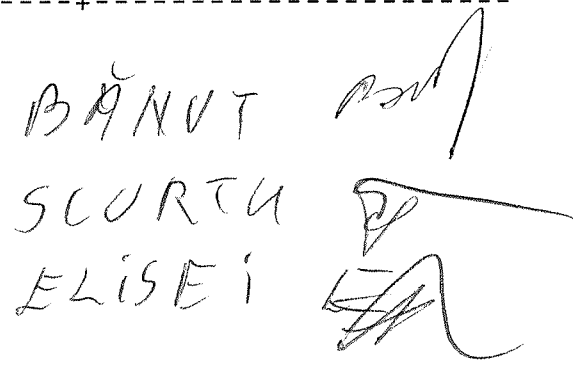 BĂNUT
SCURTU
ELiSEi